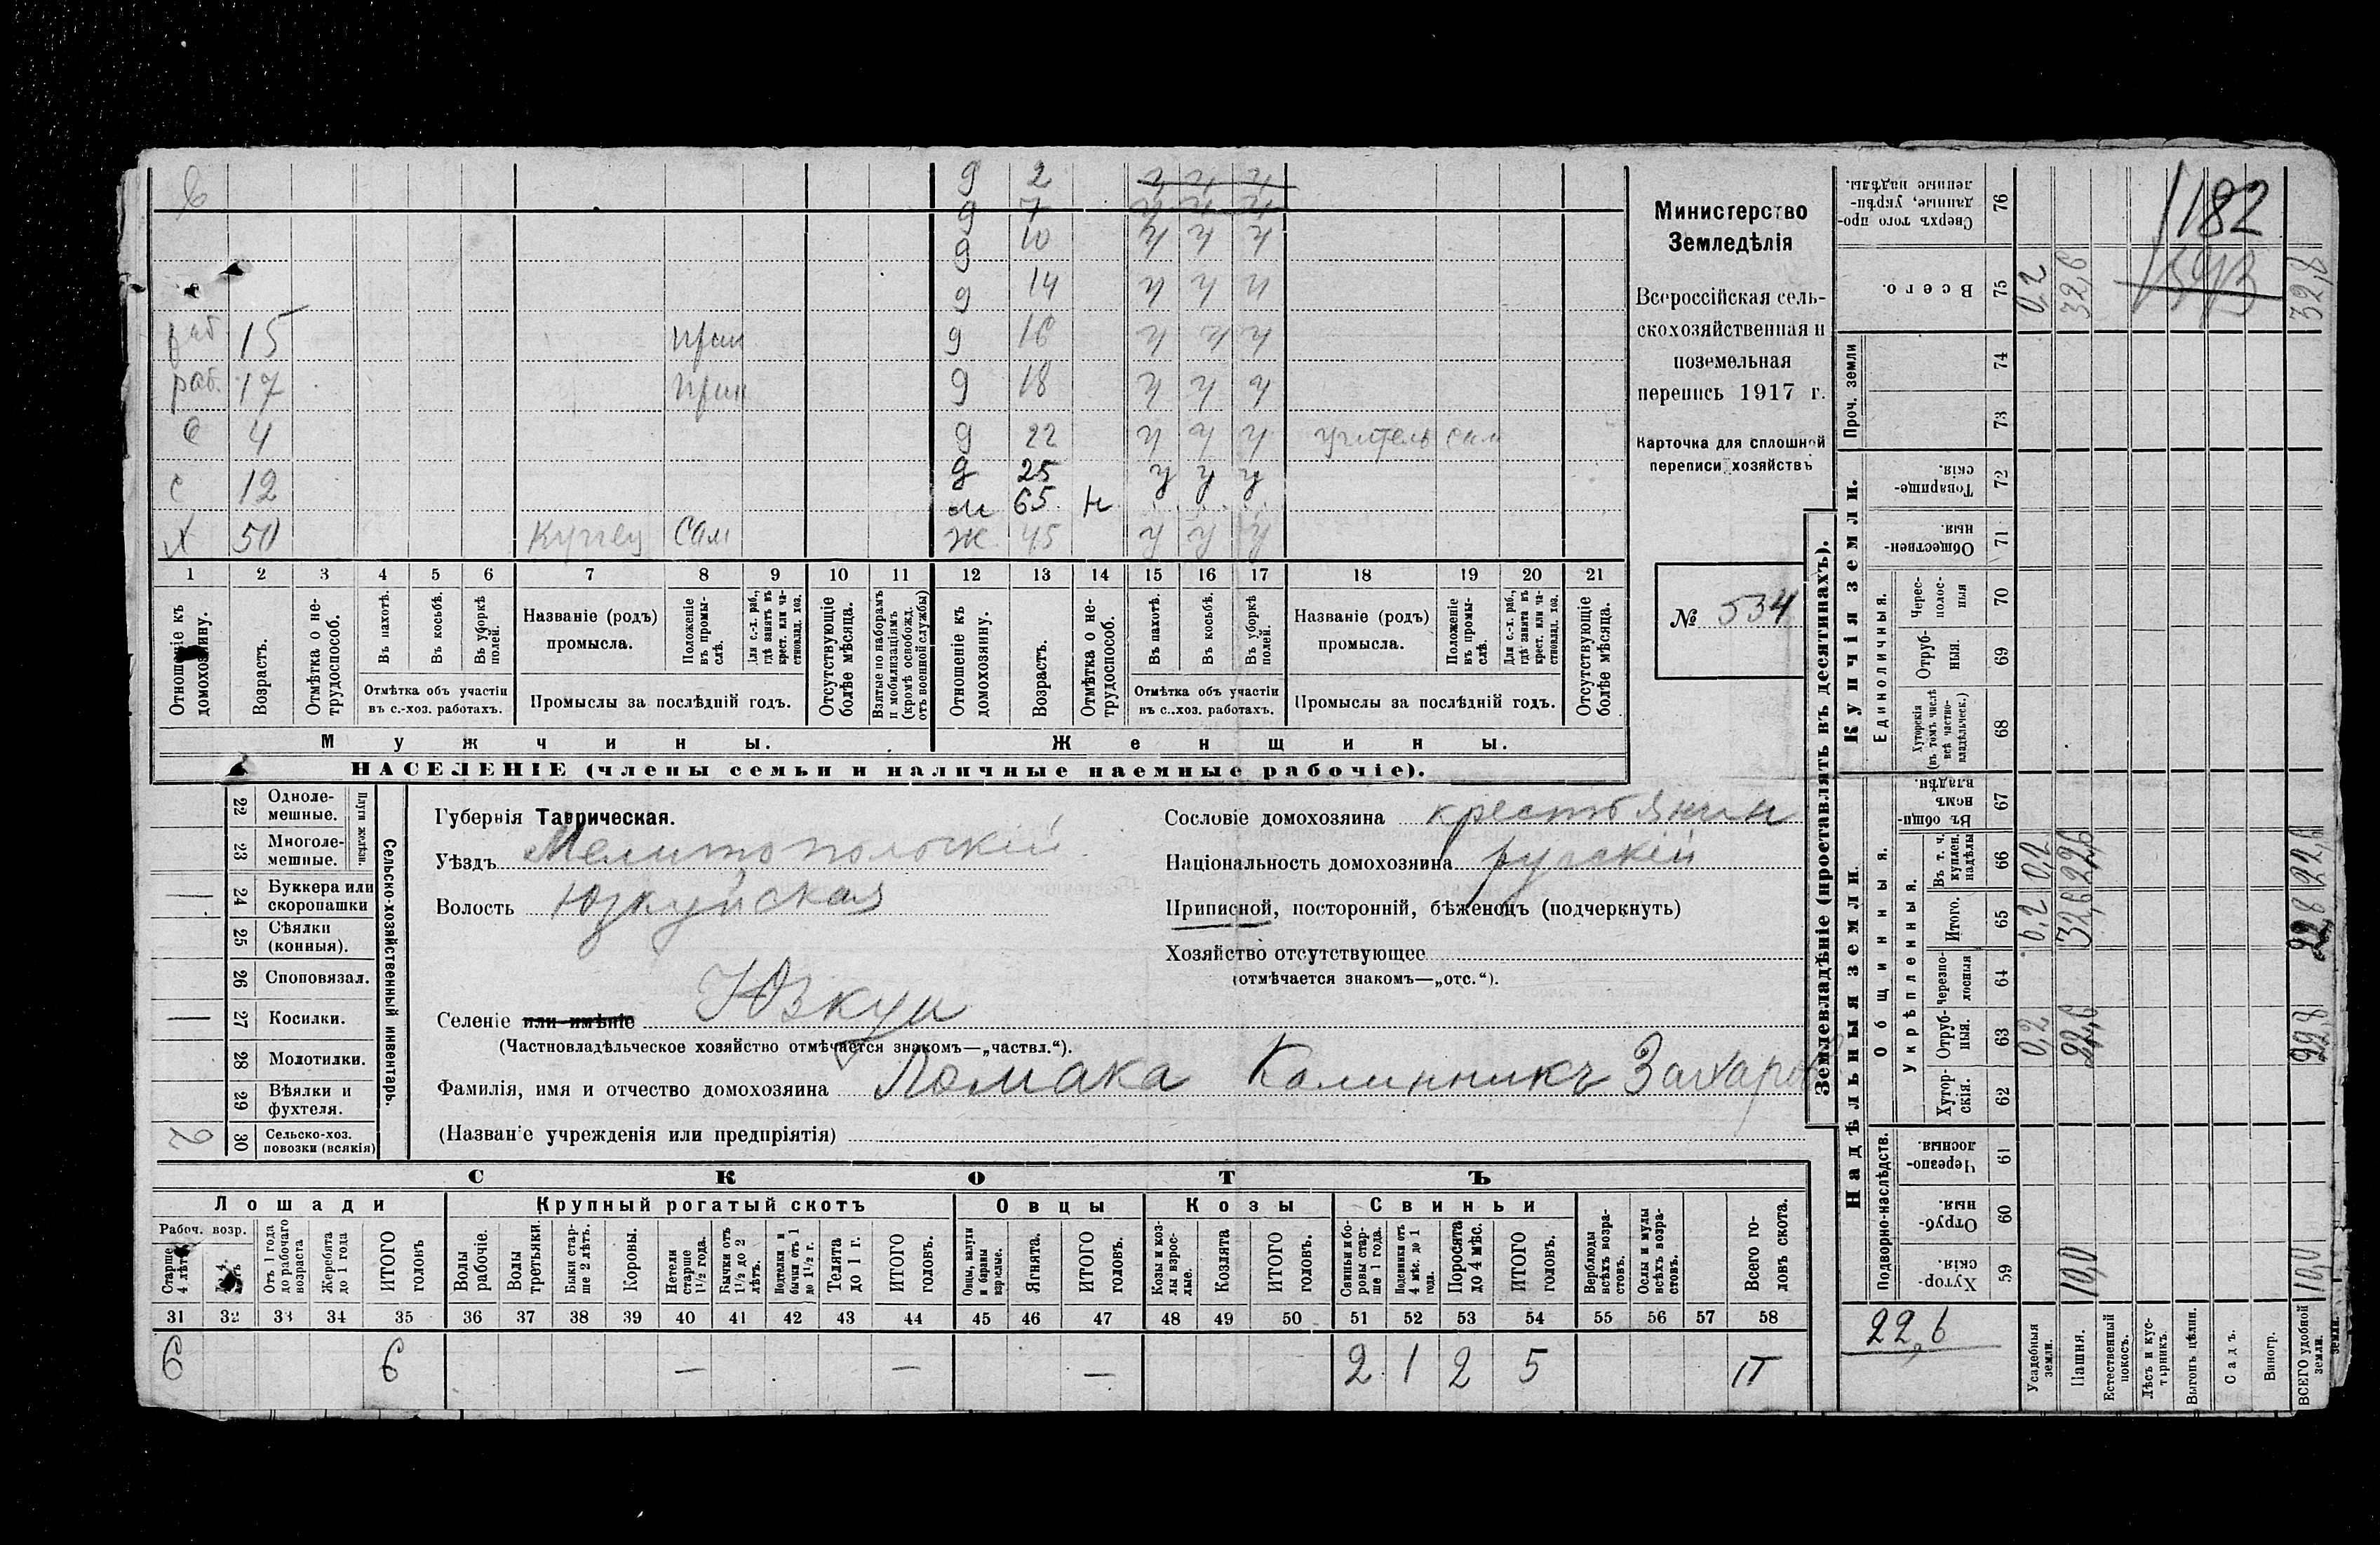 д 2
д 7 ч ч ч
д 10 ч ч ч
д 14 ч ч ч
раб 15 д 16 ч ч ч
раб. 17 д 18 ч ч ч
с 4 д 22 ч ч ч учитель сам
с 12 д 25 у у у
м 65 н
х 50 Купец Сам ж 45 у у у
1 2 3 4 5 6 7 8 9 10 11 12 13 14 15 16 17 18 19 20 21
Отношеніе къ домохозяину.
Возрастъ.
Отмѣтка о нетрудоспособ.
Въ пахотѣ.
Въ косьбѣ.
Въ уборкѣ полей.
Отмѣтка объ участіи
въ с.-хоз. работахъ.
Названіе (родъ)
промысла.
Положеніе въ промыслѣ.
Для с.-х. раб., гдѣ занятъ въ крест. или частновлад. хоз.
Промыслы за послѣдній годъ.
Отсутствующіе болѣе мѣсяца.
Взятые по наборамъ и мобилизаціямъ (кромѣ освобожд. отъ военной службы)
Отношеніе къ домохозяину.
Возрастъ.
Отмѣтка о нетрудоспособ.
Въ пахотѣ.
Въ косьбѣ.
Въ уборкѣ полей.
Отмѣтка объ участіи
въ с.-хоз. работахъ.
Названіе (родъ)
промысла.
Положеніе въ промыслѣ.
Для с.-х. раб., гдѣ занята въ крест. или частновлад. хоз.
Промыслы за послѣдній годъ.
Отсутствующіе болѣе мѣсяца.
Мужчины. Женщины.
НАСЕЛЕНІЕ (члены семьи и наличные наемные рабочіе).
Министерство
Земледѣлія
Всероссійская сель-
скохозяйственная и
поземельная
перепись 1917 г.
Карточка для сплошной
переписи хозяйствъ
№ 534
22 Одноле-
мешные.
23 Многоле-
мешные.
Плуги желѣзн.
24 Буккера или
скоропашки
25 Сѣялки
(конныя).
26 Споповязал.
27 Косилки.
28 Молотилки.
29 Вѣялки и
фухтеля.
2 30 Сельско-хоз.
повозки (всякія)
Сельско-хозяйственный инвентарь.
Губернія Таврическая.
Уѣздъ Мелитопольскій
Волость Юзкуйская
Селеніе или имѣніе Юзкуи
(Частновладѣльческое хозяйство отмѣчается знакомъ—„частвл.“).
Фамилія, имя и отчество домохозяина Ломака Калинникъ Захаров
(Названіе учрежденія или предпріятія)
Сословіе домохозяина крестьянин
Національность домохозяина русскій
Приписной, посторонній, бѣженецъ (подчеркнуть)
Хозяйство отсутствующее
(отмѣчается знакомъ—„отс.“).
СКОТЪ
Лошади Крупный рогатый скотъ Овцы Козы Свиньи
Рабоч. возр.
Старше 4 лѣтъ
Отъ 1 года до рабочаго возраста
Жеребята до 1 года
ИТОГО головъ
Волы рабочіе.
Волы третьяки.
Быки старше 2 лѣтъ.
Коровы.
Нетели старше 1½ года.
Бычки отъ 1½ до 2 лѣтъ.
Подтелки и бычки отъ 1 до 1½ г.
Телята до 1 г.
ИТОГО головъ.
Овцы, валухи и бараны взрослые.
Ягнята.
ИТОГО головъ.
Козы и козлы взрослые.
Козлята
ИТОГО головъ.
Свиньи и боровы старше 1 года.
Подсвинки отъ 4 мѣс. до 1 года.
Поросята до 4 мѣс.
ИТОГО головъ.
Верблюды всѣхъ возрастовъ.
Ослы и мулы всѣхъ возрастовъ.
Всего головъ скота.
31 32 33 34 35 36 37 38 39 40 41 42 43 44 45 46 47 48 49 50 51 52 53 54 55 56 57 58
6 6 — — — 2 1 2 5
Землевладѣніе (проставлять въ десятинахъ).
Купчія земли.
Надѣльныя земли.
Проч. земли
Единоличныя.
Общинныя.
Укрѣпленныя.
Подворно-наслѣдств.
Сверхъ того проданные, укрѣпленные надѣлы. 76
Всего. 75 0,2 32,6 32,8
74
73
Товарищескія. 72
Общественныя. 71
Чересполосныя 70
Отрубныя. 69
Хуторскія (въ томъ числѣ всѣ частновладѣльческ.) 68
Въ общиномъ владѣн. 67
Въ т. ч. куплен. надѣлы 66 0,2 22,6 22,8
Итого. 65 0,2 32,6
Черезполосныя 64
Отрубныя. 63 0,2 22,6 22,8
Хуторскія. 62
Черезполосныя 61
Отрубныя. 60
Хуторскія. 59 10,0 10,0
1182
22,6
Усадебныя земли.
Пашня.
Естественный покосъ.
Лѣсъ и кустарникъ.
Выгонъ цѣлин.
Садъ.
Виногр.
ВСЕГО удобной земли.